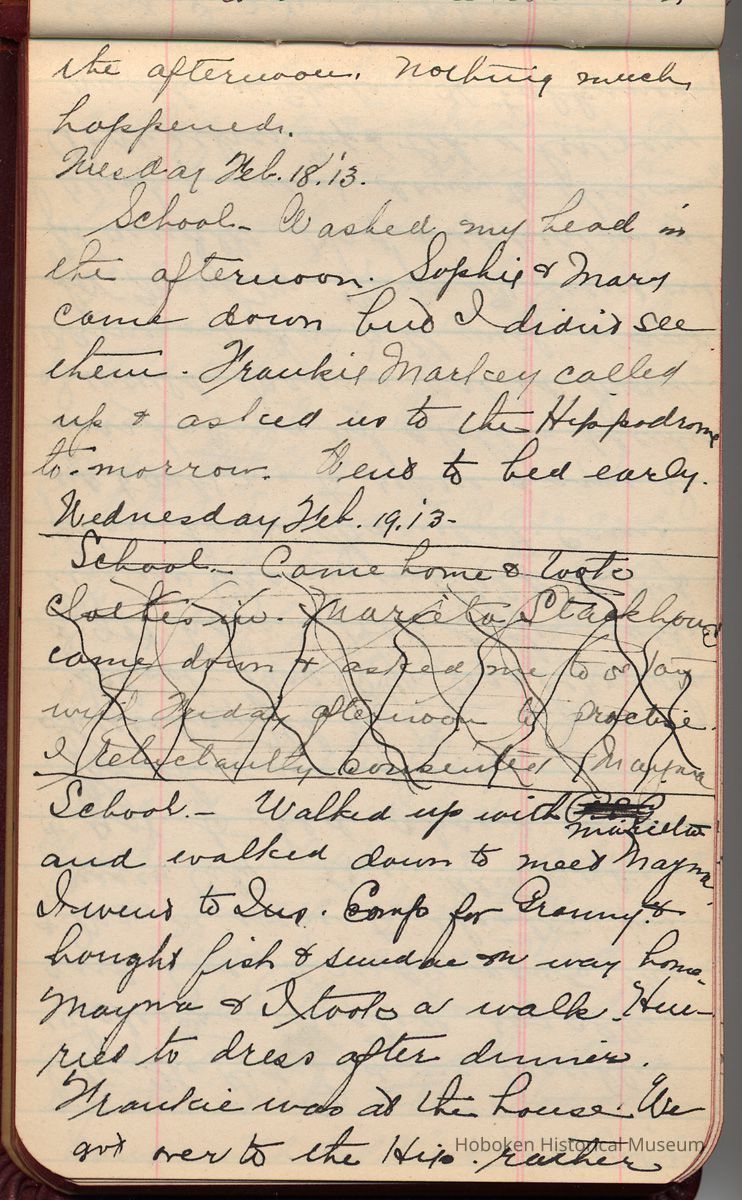 the afternoon. Nothing much
happened.
Tuesday Feb. 18.'13.
School - Washed my head in
the afternoon. Sophie & Mary
came down but I didn't see
them. Frankie Markey called
up & asked us to the Hippodrome
to-morrow. Went to bed early.
Wednesday Feb. 19.'13-
School - Came home & took
clothes in. Marieta Stackhouse
came down & asked me to stay
with Friday afternoon to practice.
I reluctantly consented Mayna
School. - Walked up with
Marietta
and walked down to meet Mayna
I went to Ins. Comp for Granny &
bought fish & sundae on way home.
Mayna & I took a walk. Hur-
ried to dress after dinner.
Frankie was at the house. We
got over to the Hip. rather
Hoboken Historical Museum